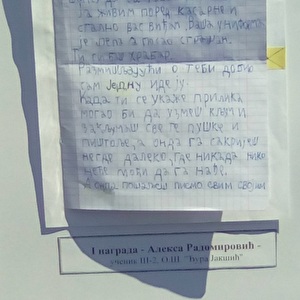 Ја живим поред касарне и
стално вас виђам, ваша униформа
је лепа а посао страшан.
Ти си баш храбар.
Размишљајући о теби добио
сам једну идеју
када ти се укаже прилика
могао би да узмеш кључ и
закључаш све те пушке и
пиштоље, а онда га сакријеш
негде далеко, где никада нико
неће моћи да га нађе.
А онда пошаљеш писмо свим својим
I награда - Алекса Радомировић -
ученик III-2, О.Ш. "Ђура Јакшић"